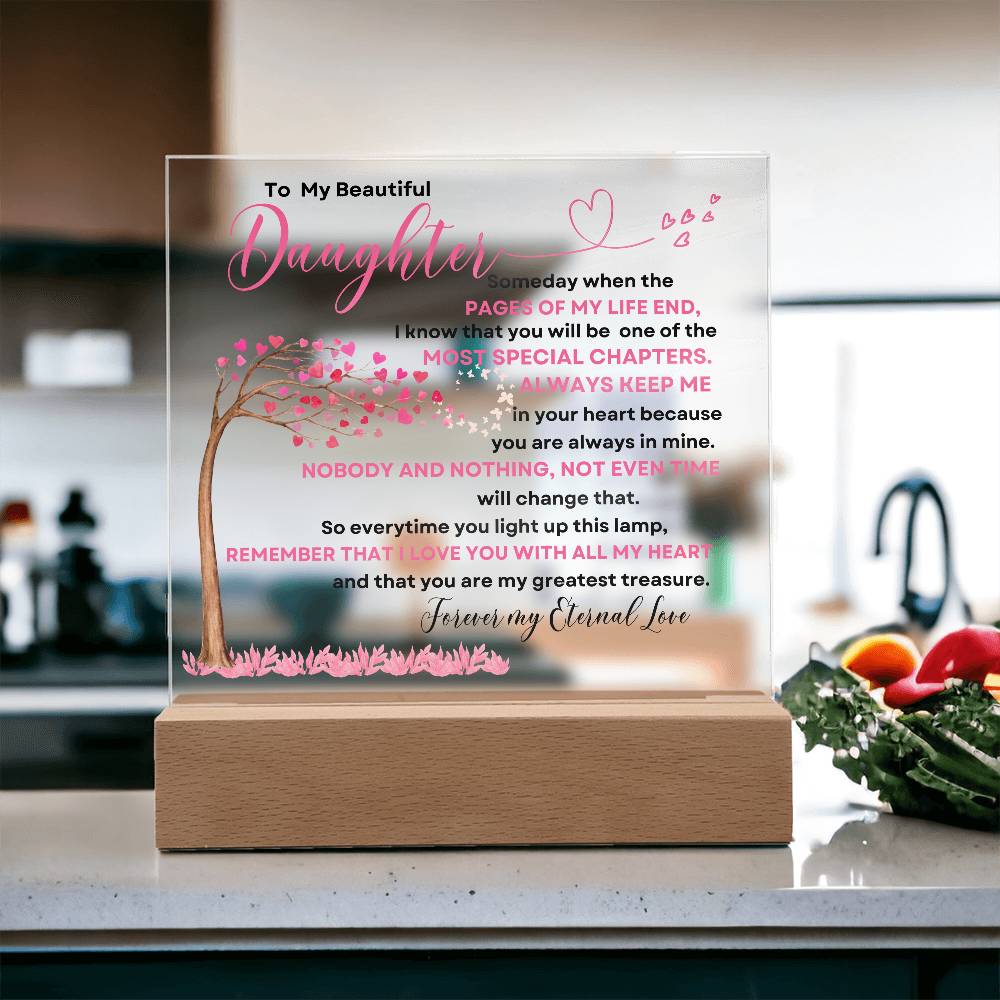 To My Beautiful
Daughter
Someday when the
PAGES OF MY LIFE END,
I know that you will be one of the
MOST SPECIAL CHAPTERS.
ALWAYS KEEP ME
in your heart because
you are always in mine.
NOBODY AND NOTHING, NOT EVEN TIME
will change that.
So everytime you light up this lamp,
REMEMBER THAT I LOVE YOU WITH ALL MY HEART
and that you are my greatest treasure.
Forever my Eternal Love